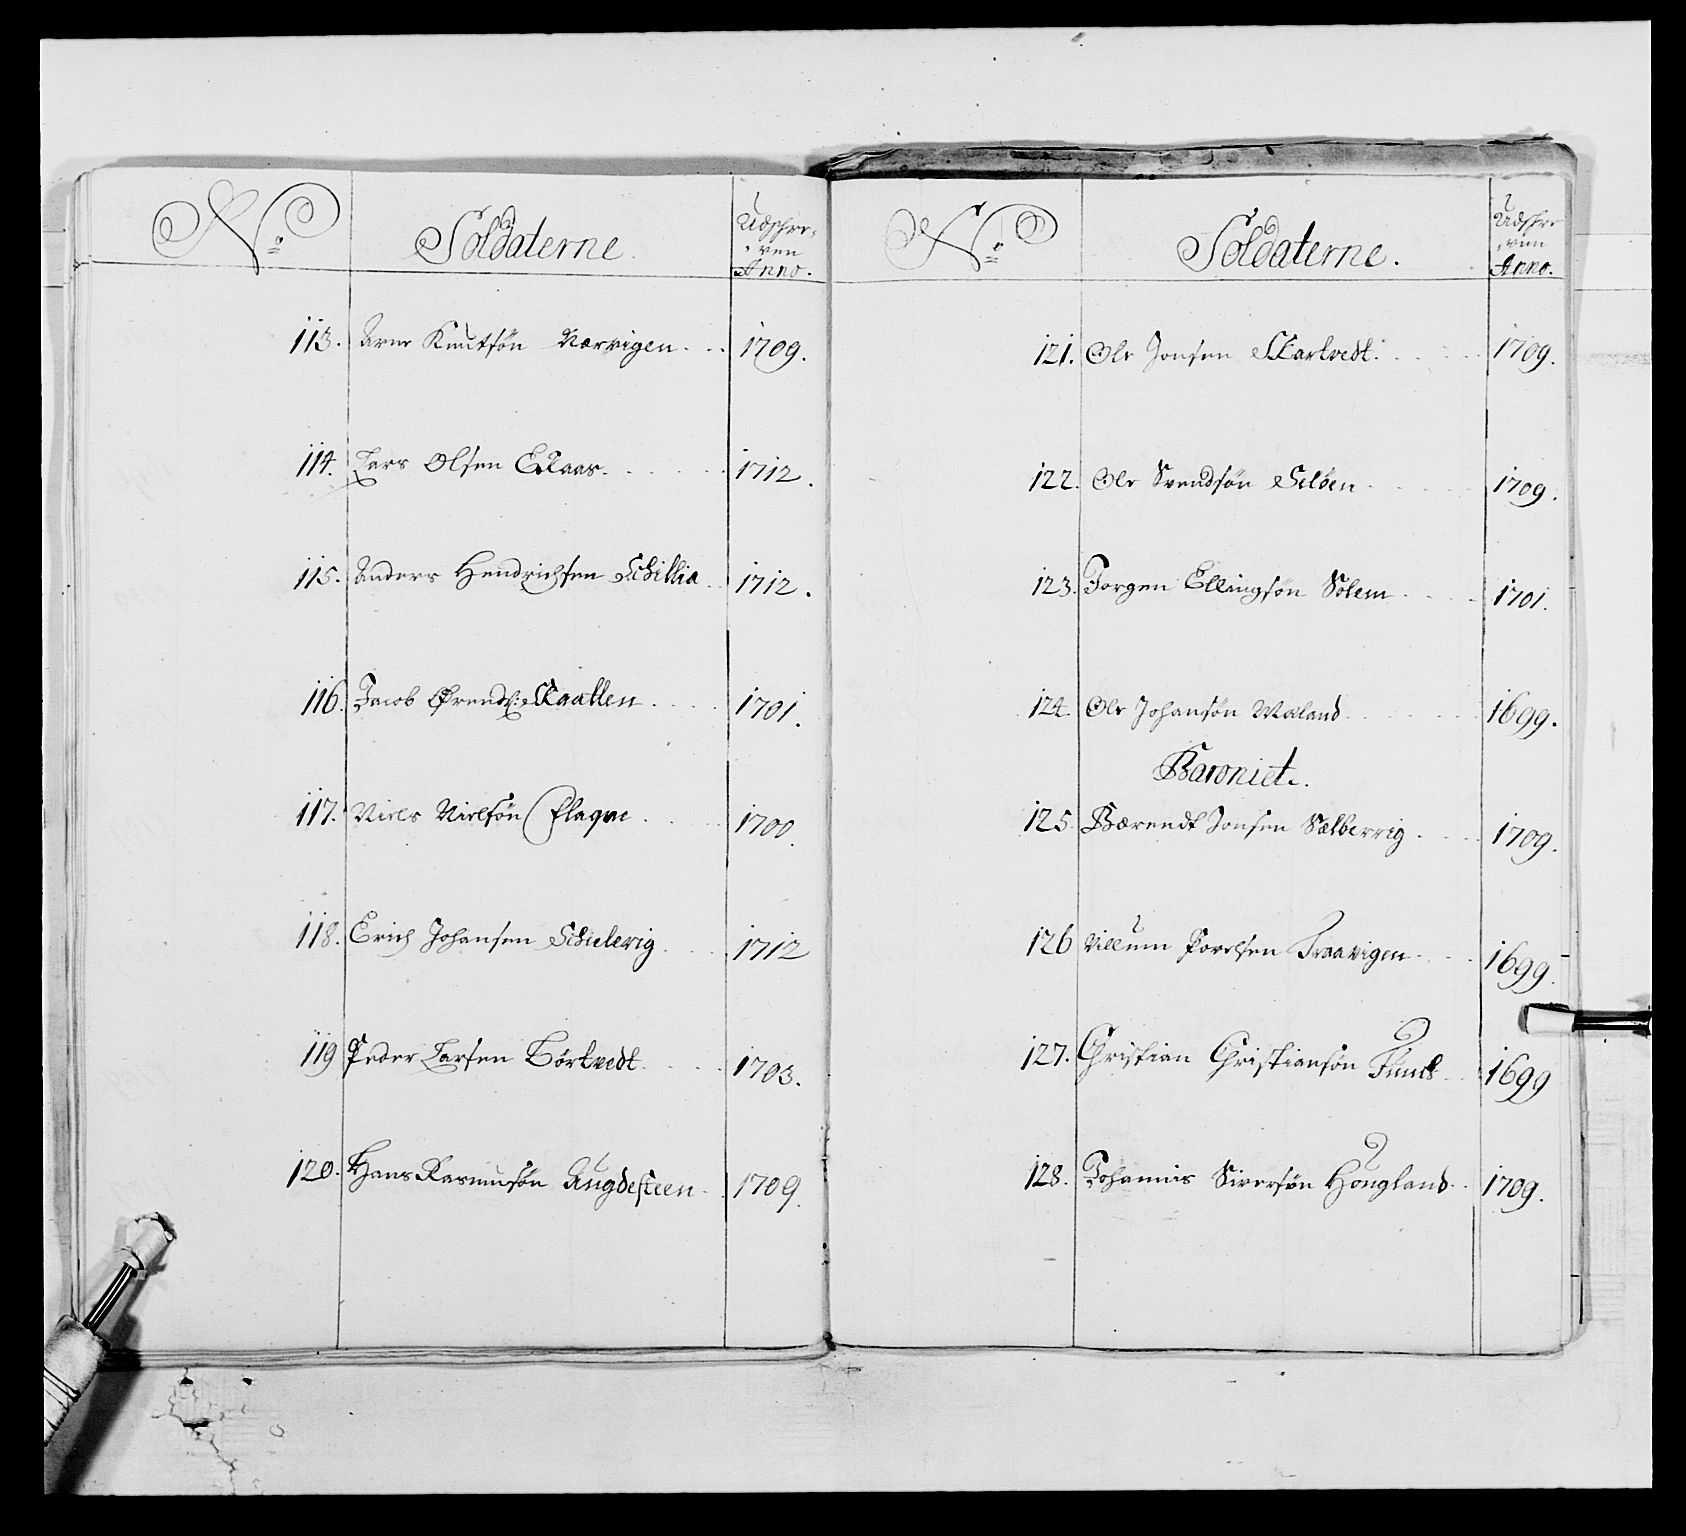 No
Soldaterne
Udschre-
ven
Anno.
113. Arne Knutsøn Nærrigen 1709.
114. Lars Olsen Echaas 1712.
115. Anders Hendrichsen Schillia 1712.
116. Jacob Ørends: Skaatten 1701.
117. Niels Nielsøn Flague 1700.
118. Erich Johansen Schielerig 1712
119 Peder Larsen Börtvedt 1703.
120. Hans Rasmusøn Augdesteen 1709.
No
Soldaterne.
Udschre-
ven
Anno.
121. Ole Jonsen Skartvedt. 1709.
122. Ole Svendsøn Seløen 1709.
123. Jorgen Ellingsøn Solem 1701.
124. Ole Johansøn Waland 1699.
Baroniet.
125. Bærendt Jonsen Sælberrig 1709.
126 Villum Povelsen Traavigen 1699.
127. Christian Christiansøn 1699
128. Johannis Siversøn Hougland 1709.